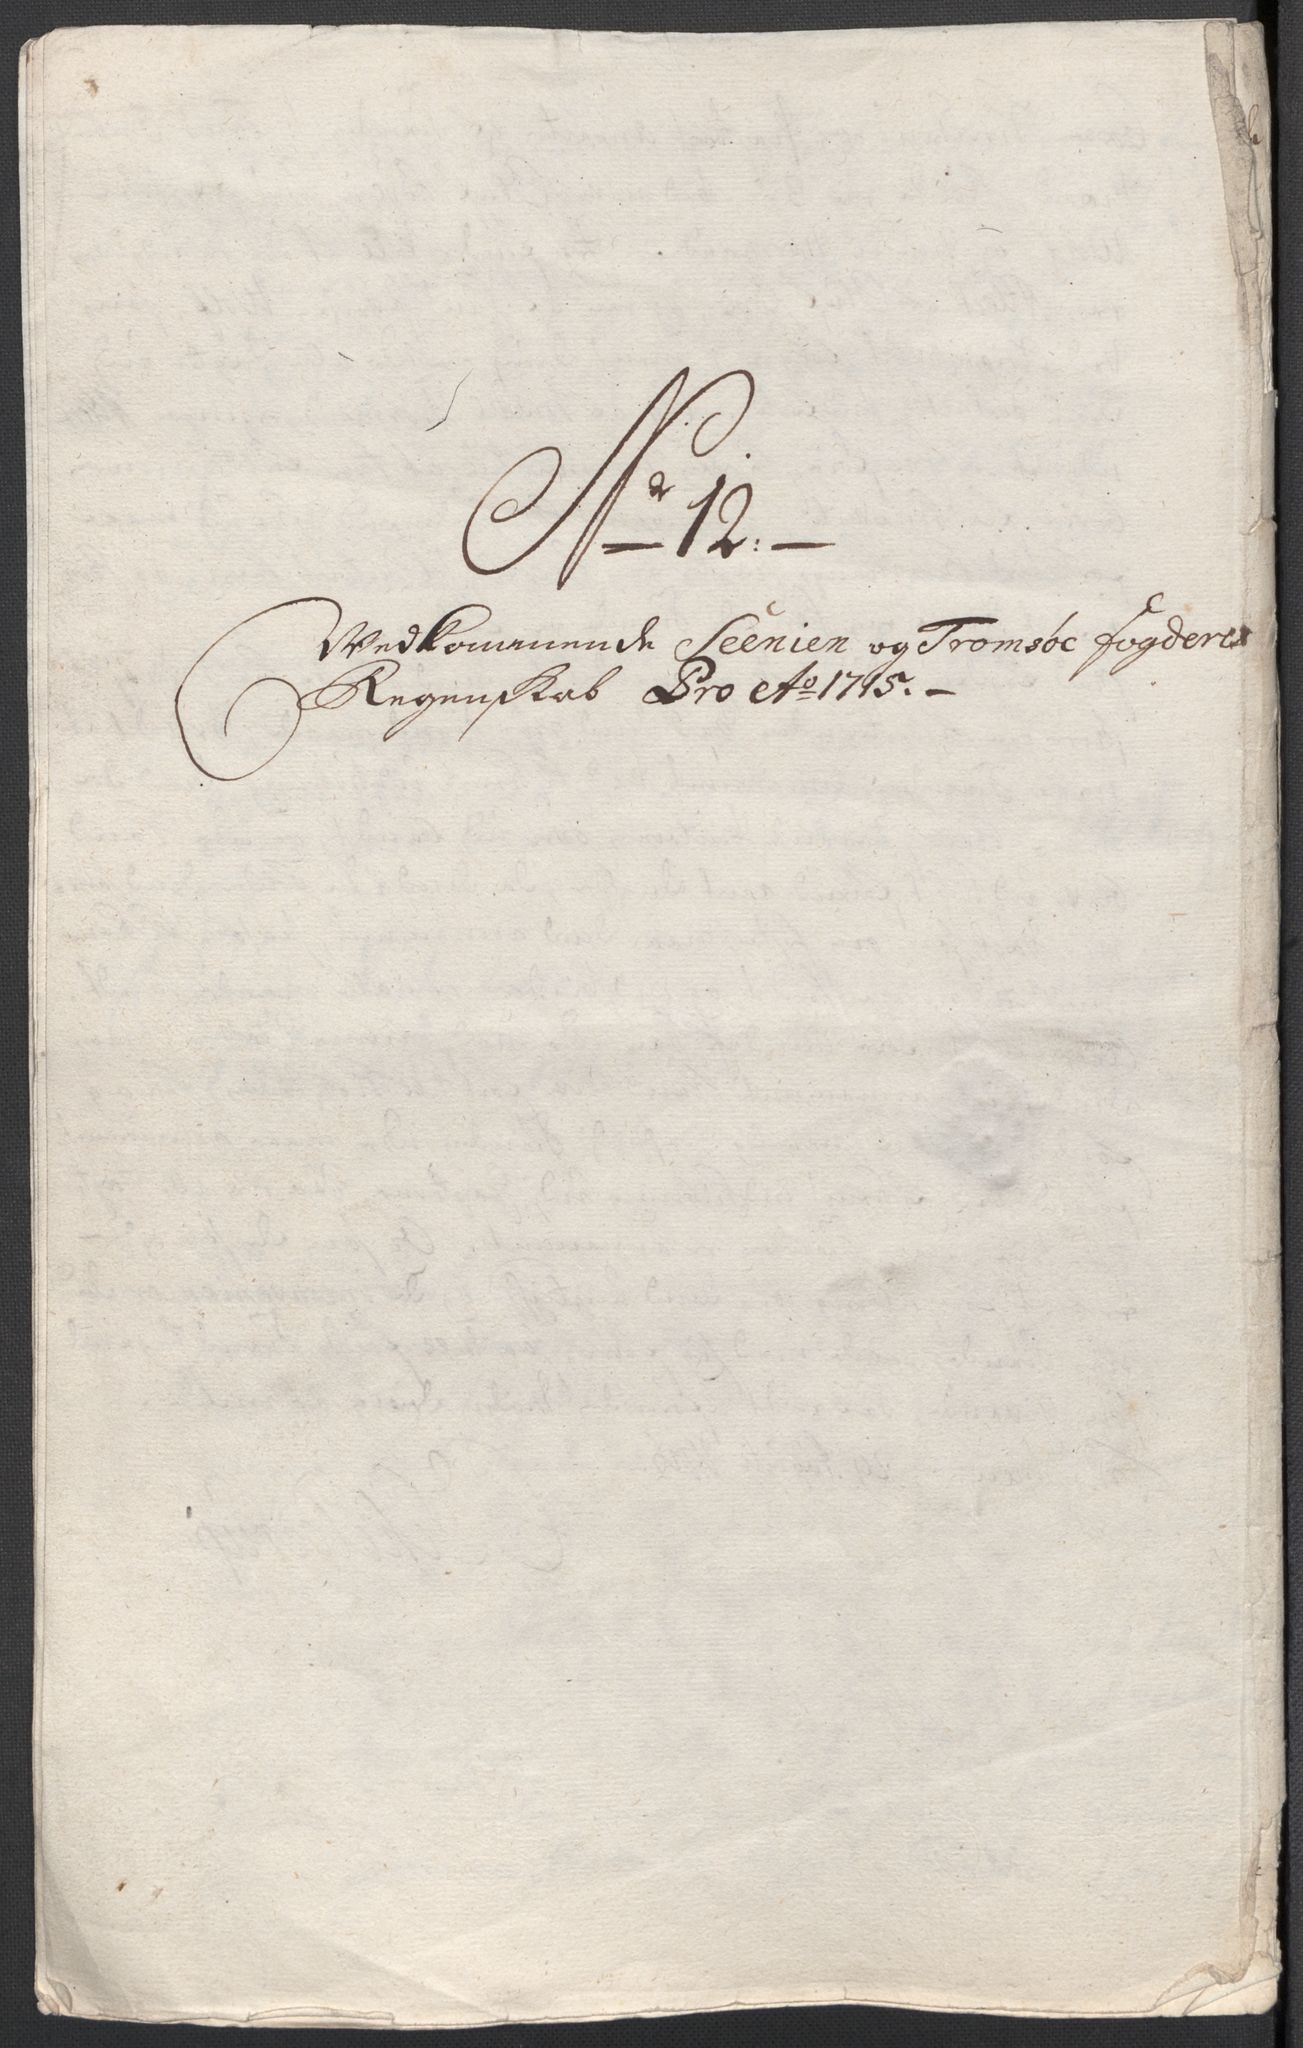 No 12.
Vedkommende Seenien og Tromsøe fogderes
Regenskab Pro Ao 1715.